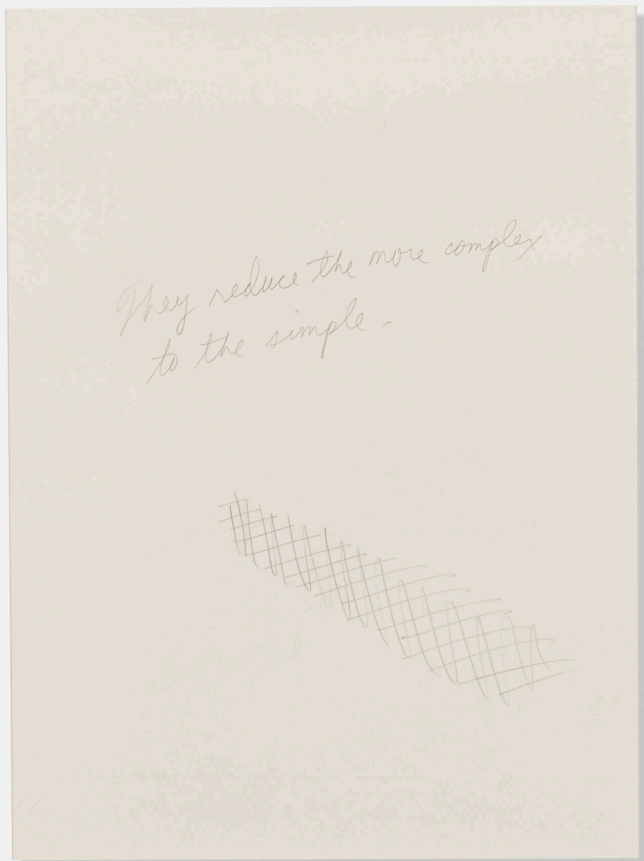 They reduce the more complex
to the simple -